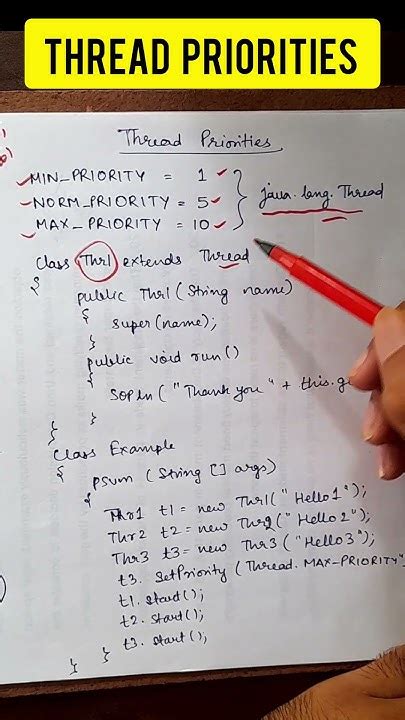 THREAD PRIORITIES
Thread Priorities
MIN_PRIORITY = 1
NORM_PRIORITY = 5 java.lang.Thread
MAX_PRIORITY = 10
Class Thr1 extends Thread
{
public Thr1 (String name)
{
super(name);
}
public void run()
{
SOPln ("Thank you" + this.ge
}
}
Class Example
{
psvm (String [] args)
{
Thr1 t1 = new Thr1("Hello1");
Thr2 t2 = new Thr2("Hello2");
Thr3 t3 = new Thr3("Hello3");
t3. SetPriority (Thread. MAX-PRIORITY"
t1. start();
t2. start();
t3. start();
}
}